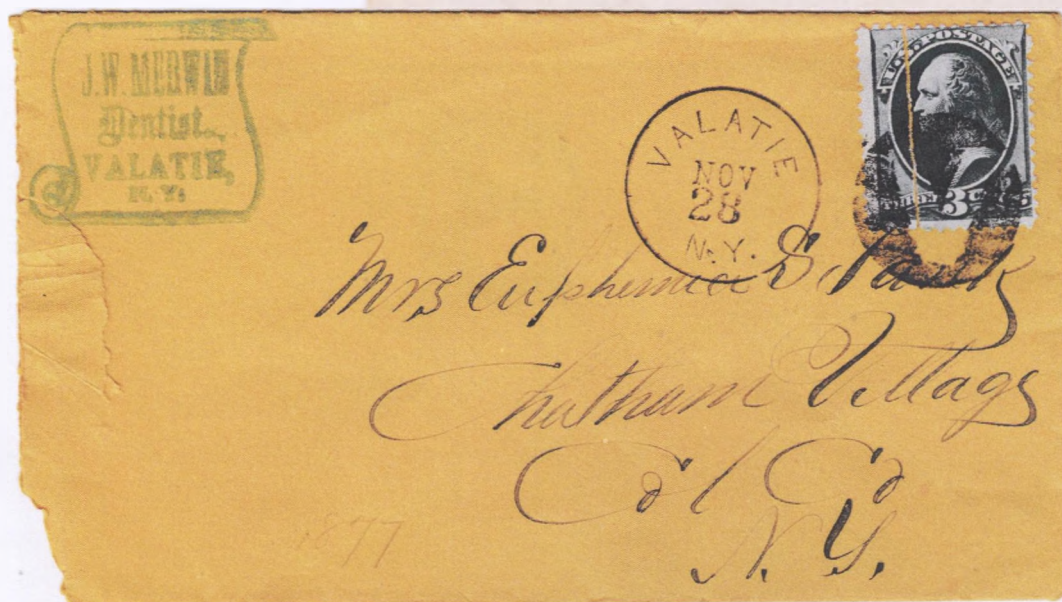 J. W. MERWIN
Dentist
VALATIE,
N. Y.
VALATIE
NOV
28
N.Y.
U.S. POSTAGE
3
Mrs Euphemia
Chatham Village
Col Co
N. Y.
1877